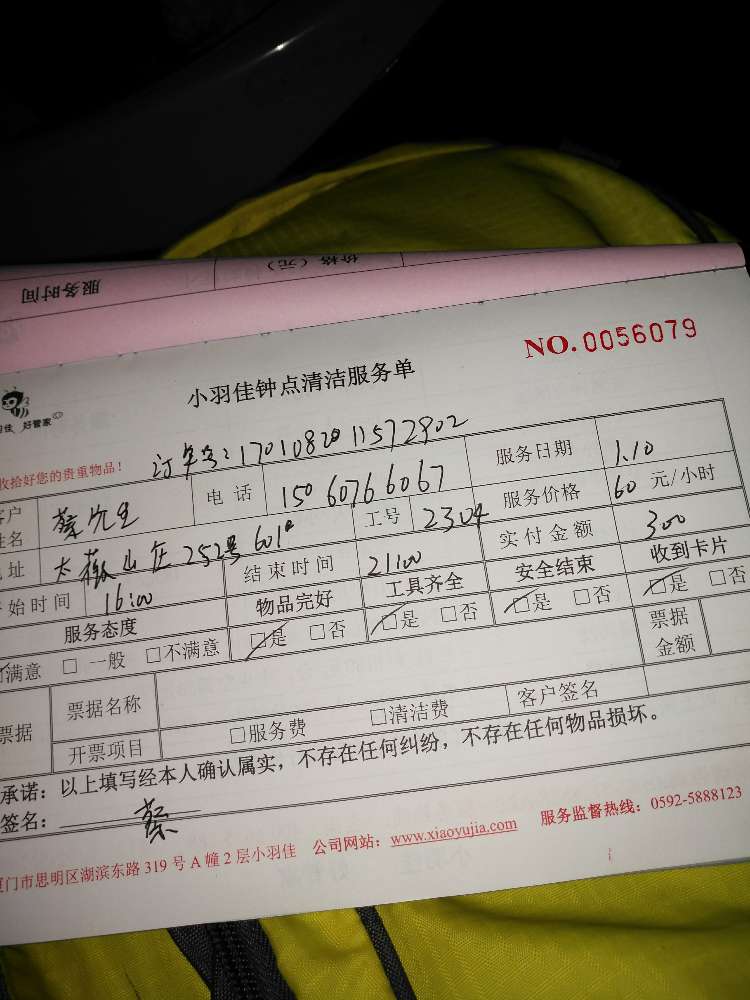 服务时间 价格（元）
NO.0056079
小羽佳钟点清洁服务单
羽佳 好管家
收拾好您的贵重物品！ 订单号：1701082011572902
客户姓名 蔡先生 电话 15060766067 服务日期 1.10
地址 山庄252号601 工号 2304 服务价格 60 元/小时
开始时间 16:00 结束时间 21:00 实付金额 300
服务态度 物品完好 工具齐全 安全结束 收到卡片
□满意 □一般 □不满意 □是 □否 □是 □否 □是 □否 □是 □否
票据 票据名称 票据金额
开票项目 □服务费 □清洁费 客户签名
承诺：以上填写经本人确认属实，不存在任何纠纷，不存在任何物品损坏。
签名： 蔡
厦门市思明区湖滨东路319号A幢2层小羽佳 公司网站：www.xiaoyujia.com 服务监督热线：0592-5888123